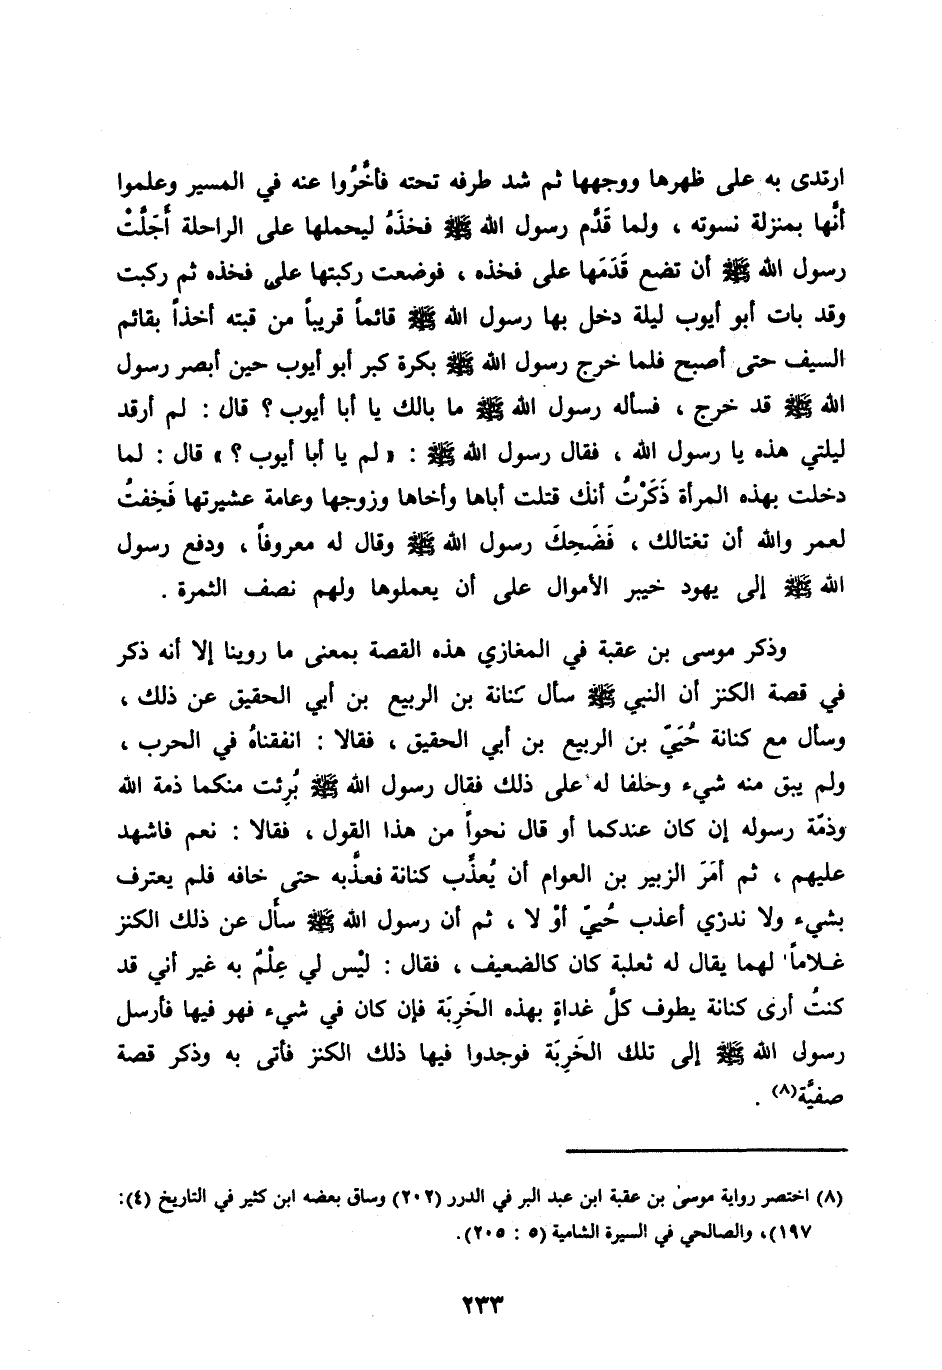 ارتدى به على ظهرها ووجهها ثم شد طرفه تحته فأخَّرُوا عنه في المسير وعلموا
أنَّها بمنزلة نسوته ، ولما قَدَّم رسول الله ﷺ فخذَهُ ليحملها على الراحلة أَجَلَّتْ
رسول الله ﷺ أن تضع قَدَمَها على فخذه ، فوضعت ركبتها على فخذه ثم ركبت
وقد بات أبو أيوب ليلة دخل بها رسول الله ﷺ قائماً قريباً من قبته أخذاً بقائم
السيف حتى أصبح فلما خرج رسول الله ﷺ بكرة كبر أبو أيوب حين أبصر رسول
الله ﷺ قد خرج ، فسأله رسول الله ﷺ ما بالك يا أبا أيوب ؟ قال : لم أرقد
ليلتي هذه يا رسول الله ، فقال رسول الله ﷺ : « لم يا أبا أيوب ؟ » قال : لما
دخلت بهذه المرأة ذَكَرْتُ أنك قتلت أباها وأخاها وزوجها وعامة عشيرتها فَخِفتُ
لعمر والله أن تغتالك ، فَضَحِكَ رسول الله ﷺ وقال له معروفاً ، ودفع رسول
الله ﷺ إلى يهود خيبر الأموال على أن يعملوها ولهم نصف الثمرة .
وذكر موسى بن عقبة في المغازي هذه القصة بمعنى ما روينا إلا أنه ذكر
في قصة الكنز أن النبي ﷺ سأل كنانة بن الربيع بن أبي الحقيق عن ذلك ،
وسأل مع كنانة حُيَيّ بن الربيع بن أبي الحقيق ، فقالا : انفقناهُ في الحرب ،
ولم يبق منه شيء وحلفا له على ذلك فقال رسول الله ﷺ بُرِئت منكما ذمة الله
وذمّة رسوله إن كان عندكما أو قال نحواً من هذا القول ، فقالا : نعم فاشهد
عليهم ، ثم أمَرَ الزبير بن العوام أن يُعذَّب كنانة فعذَّبه حتى خافه فلم يعترف
بشيء ولا ندرْي أعذب حُييّ أوْ لا ، ثم أن رسول الله ﷺ سأل عن ذلك الكنز
غلاماً لهما يقال له ثعلبة كان كالضعيف ، فقال : ليْس لي عِلْمٌ به غير أني قد
كنتُ أرى كنانة يطوف كلَّ غداةٍ بهذه الخَرِبَة فإن كان في شيء فهو فيها فأرسل
رسول الله ﷺ إلى تلك الخَرِبَة فوجدوا فيها ذلك الكنز فأتى به وذكر قصة
صفيَّة(٨) .
(٨) اختصر رواية موسىٰ بن عقبة ابن عبد البر في الدرر (٢٠٢) وساق بعضه ابن كثير في التاريخ (٤):
١٩٧)، والصالحي في السيرة الشامية (٥ : ٢٠٥).
٢٣٣